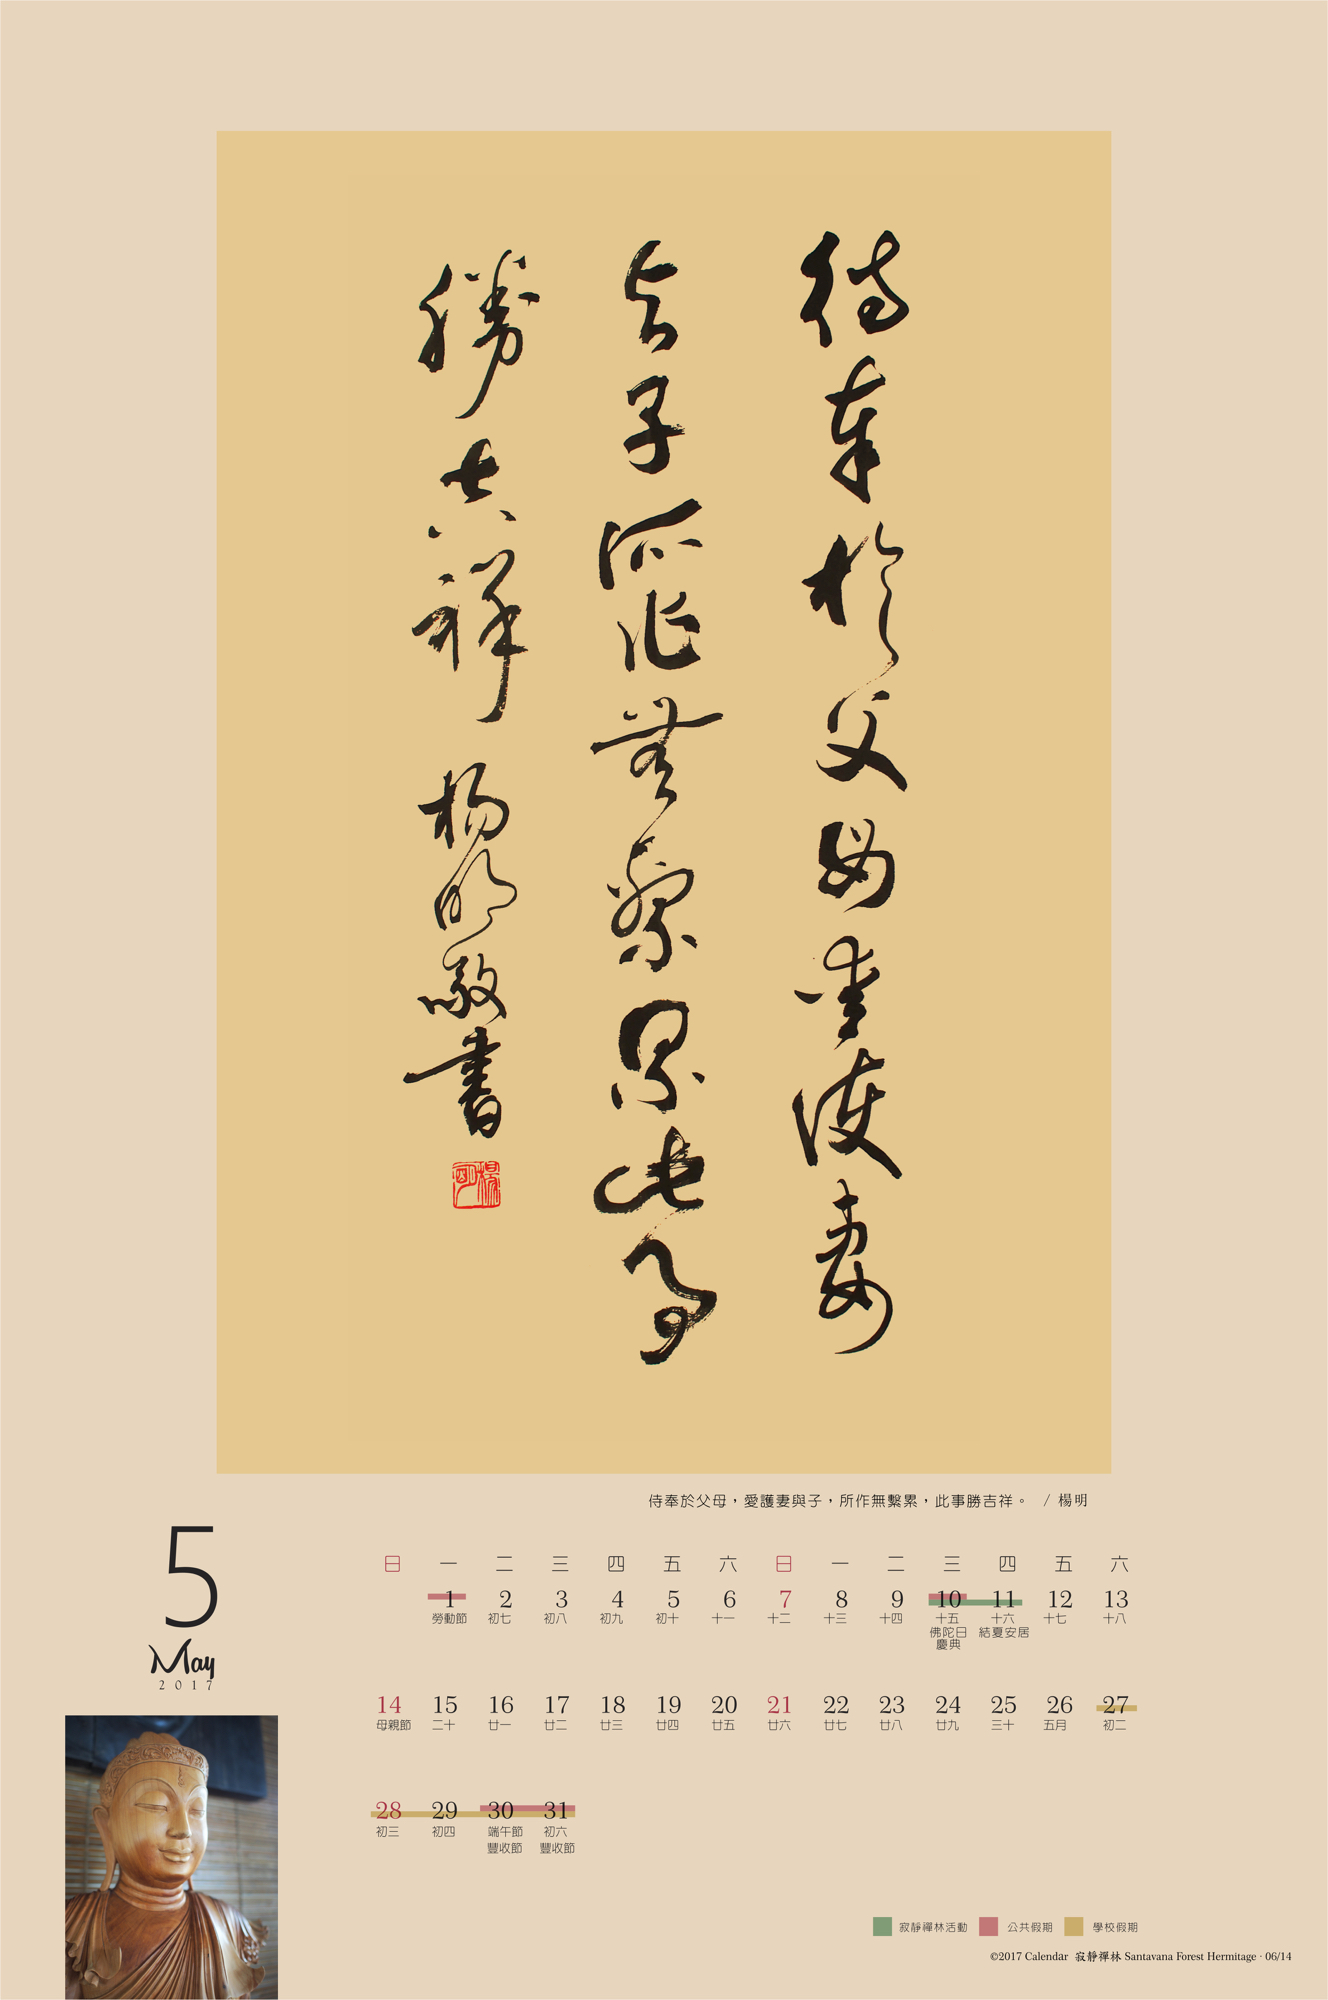 侍奉於父母愛護妻
與子所作無繫累此事
勝吉祥 楊明敬書
楊明
侍奉於父母，愛護妻與子，所作無繫累，此事勝吉祥。 / 楊明
5
May
2017
日 一 二 三 四 五 六 日 一 二 三 四 五 六
1 2 3 4 5 6 7 8 9 10 11 12 13
勞動節 初七 初八 初九 初十 十一 十二 十三 十四 十五 十六 十七 十八
佛陀日 結夏安居
慶典
14 15 16 17 18 19 20 21 22 23 24 25 26 27
母親節 二十 廿一 廿二 廿三 廿四 廿五 廿六 廿七 廿八 廿九 三十 五月 初二
28 29 30 31
初三 初四 端午節 初六
豐收節 豐收節
寂靜禪林活動 公共假期 學校假期
©2017 Calendar 寂靜禪林 Santavana Forest Hermitage · 06/14